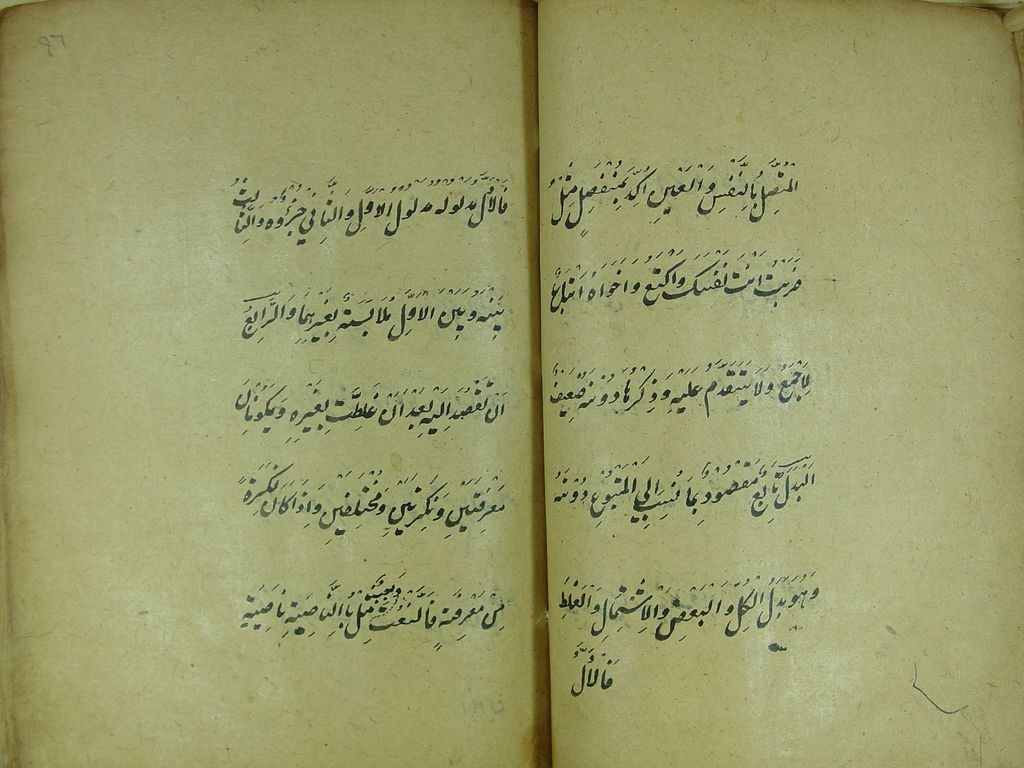 المتصل بالنفس والعين اكد بمنفصل مثل
ضربت انت نفسك واكتع واخواه اتباع
لاجمع ولا يتقدم عليه وذكرها دونه ضعيف
البدل تابع مقصود بما نسب الي المتبوع دونه
وهو بدل الكل والبعض والاشتمال والغلط
فالاول
فالاول مدلوله مدلول الاول والثاني جزؤه والثالث
بينه وبين الاول ملابسة بغيرهما والرابع
ان تقصد اليه بعد ان غلطت بغيره ويكونان
معرفتين ونكرتين ومختلفين واذا كان نكرة
من معرفة فالنعت مثل بالناصية ناصية
٩٦